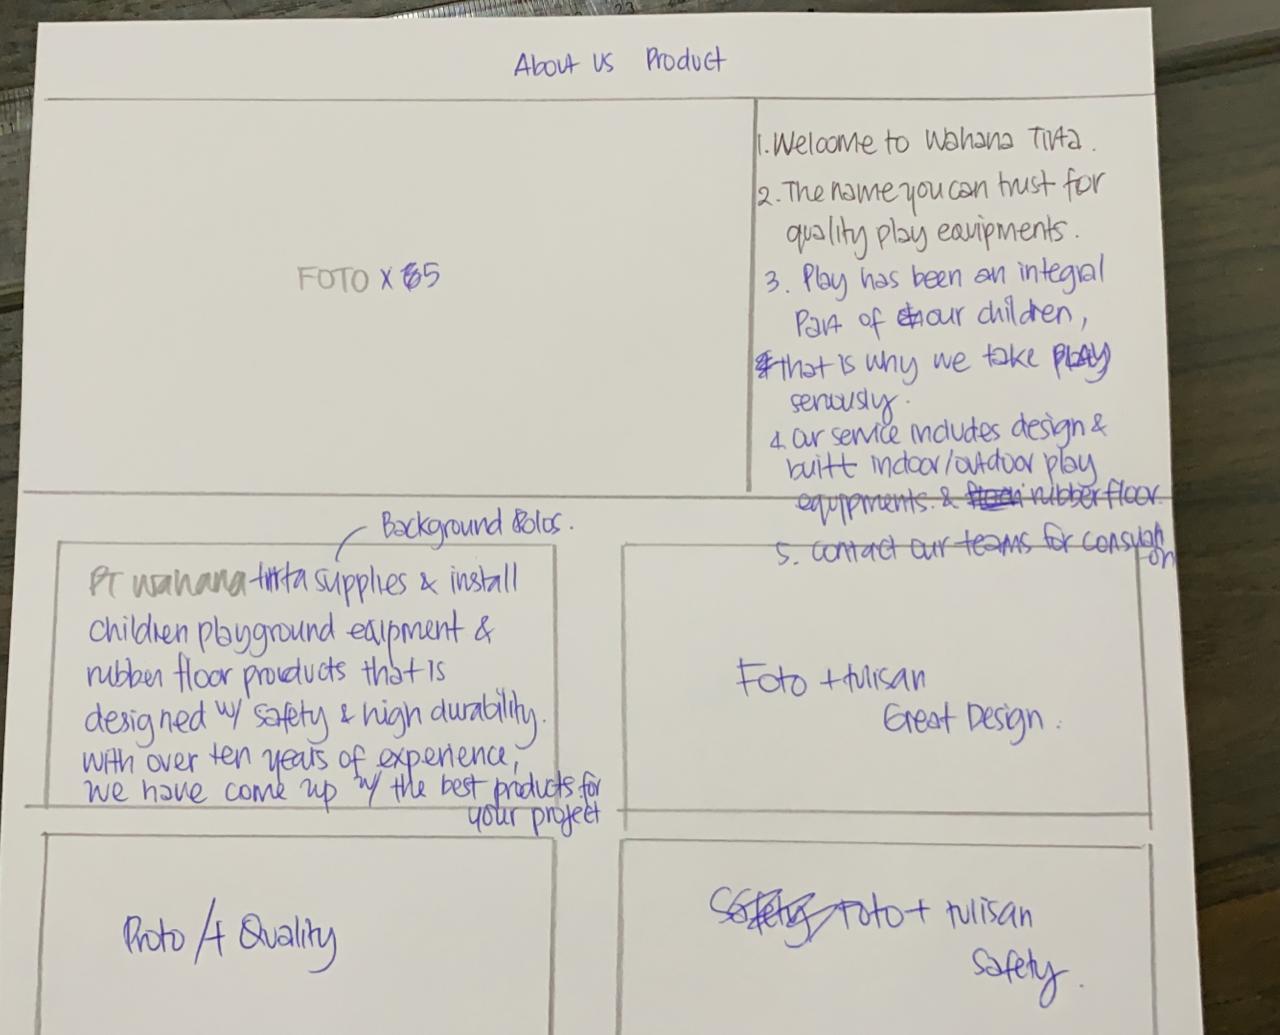 23
About us Product
1. Welcome to Wahana Tirta.
2. The name you can trust for
quality play equipments.
FOTO X 5
3. Play has been an integral
Part of our children,
that is why we take play
seriously.
4. Our service includes design &
built indoor/outdoor play
equipments. & rubber floor.
5. contact our teams for consultation
Background Polos.
PT wahana tirta supplies & install
children playground equipment &
rubber floor products that is
designed w/ safety & high durability.
with over ten years of experience,
we have come up w/ the best products for
your project
Foto + tulisan
Great Design.
Photo / + Quality
Foto + tulisan
Safety.